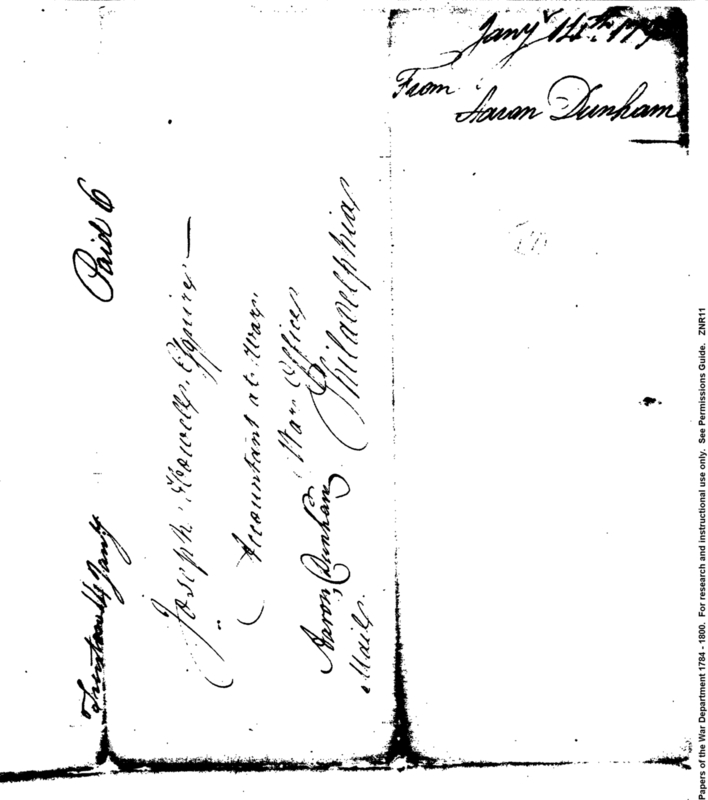 Jany 14th 179
From
Aaron Dunham
Trenton 14 Jany
Paid 6
Joseph Howell Esquire
Accountant at War
War Office
Philadelphia
Aaron Dunham
Mail
Papers of the War Department 1784 - 1800. For research and instructional use only. See Permissions Guide. ZNR11